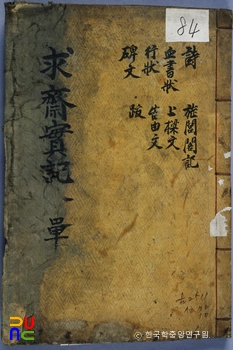 84
詩 旌閭閣記
血書狀 上樑文
行狀 告由文
碑文 跋
求齋實記 單
ⓒ 한국학중앙연구원